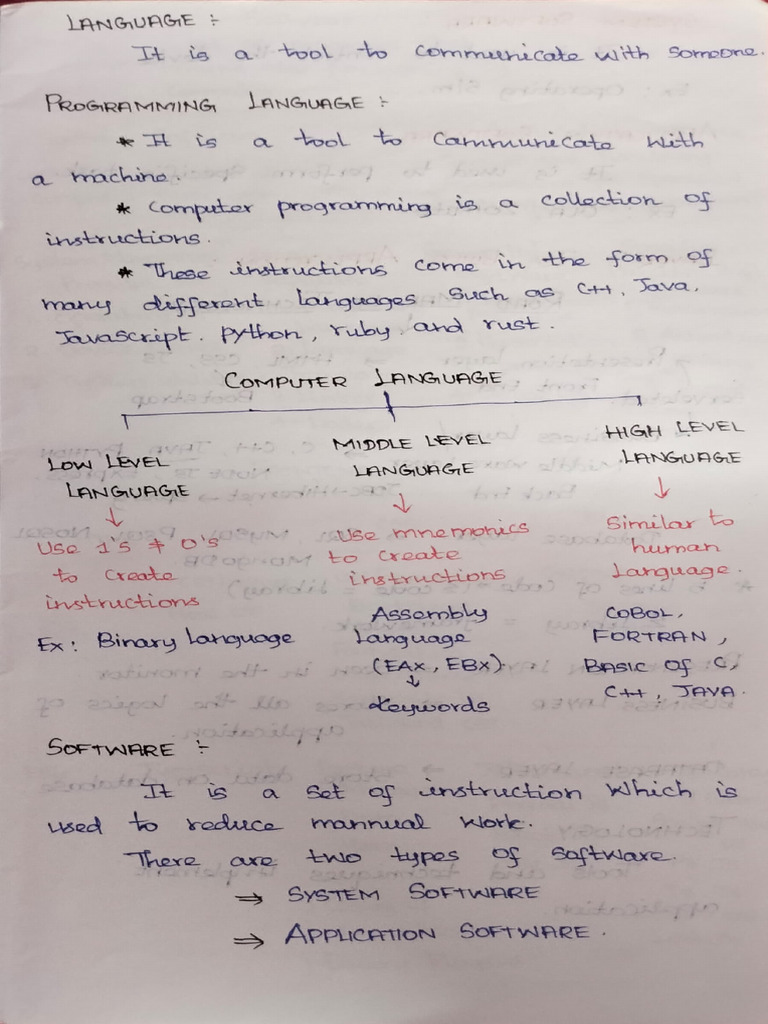 LANGUAGE :-
It is a tool to communicate with someone.
PROGRAMMING LANGUAGE :-
* It is a tool to communicate with
a machine.
* Computer programming is a collection of
instructions.
* These instructions come in the form of
many different languages such as C++, Java,
Javascript. python, ruby and rust.
COMPUTER LANGUAGE
LOW LEVEL
LANGUAGE
↓
Use 1's & 0's
to create
instructions
Ex: Binary language
MIDDLE LEVEL
LANGUAGE
↓
Use mnemonics
to create
instructions
Assembly
Language
(EAX, EBX)
↓
Keywords
HIGH LEVEL
LANGUAGE
↓
Similar to
human
language.
COBOL,
FORTRAN,
BASIC of C,
C++, JAVA.
SOFTWARE :-
It is a set of instruction which is
used to reduce mannual work.
There are two types of software.
⇒ SYSTEM SOFTWARE
⇒ APPLICATION SOFTWARE.